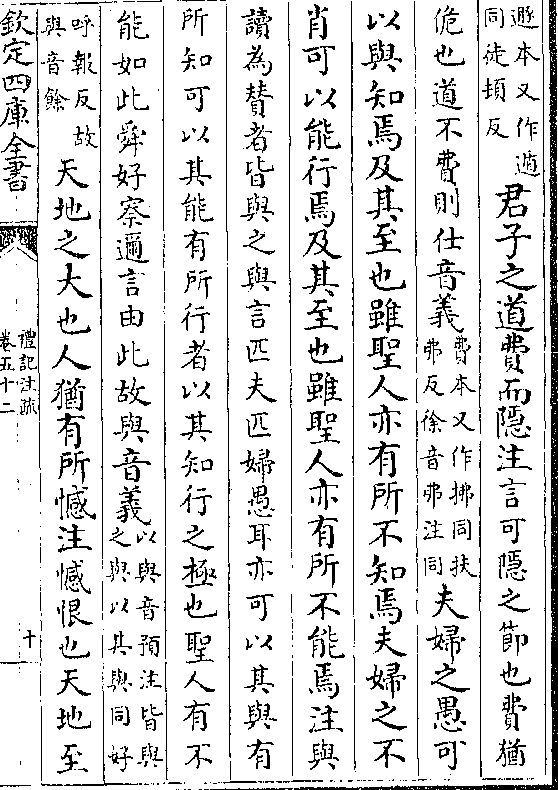 遯本又作遁
同徒頓反
君子之道費而隱注言可隱之節也費猶
佹也道不費則仕音義
費本又作拂同扶
弗反徐音弗注同
夫婦之愚可
以與知焉及其至也雖聖人亦有所不知焉夫婦之不
肖可以能行焉及其至也雖聖人亦有所不能焉注與
讀為贊者皆與之與言匹夫匹婦愚耳亦可以其與有
所知可以其能有所行者以其知行之極也聖人有不
能如此舜好察邇言由此故與音義
以與音預注皆與
之與以其與同好
呼報反故
與音餘
天地之大也人猶有所憾注憾恨也天地至
欽定四庫全書
禮記注疏
卷五十二
十